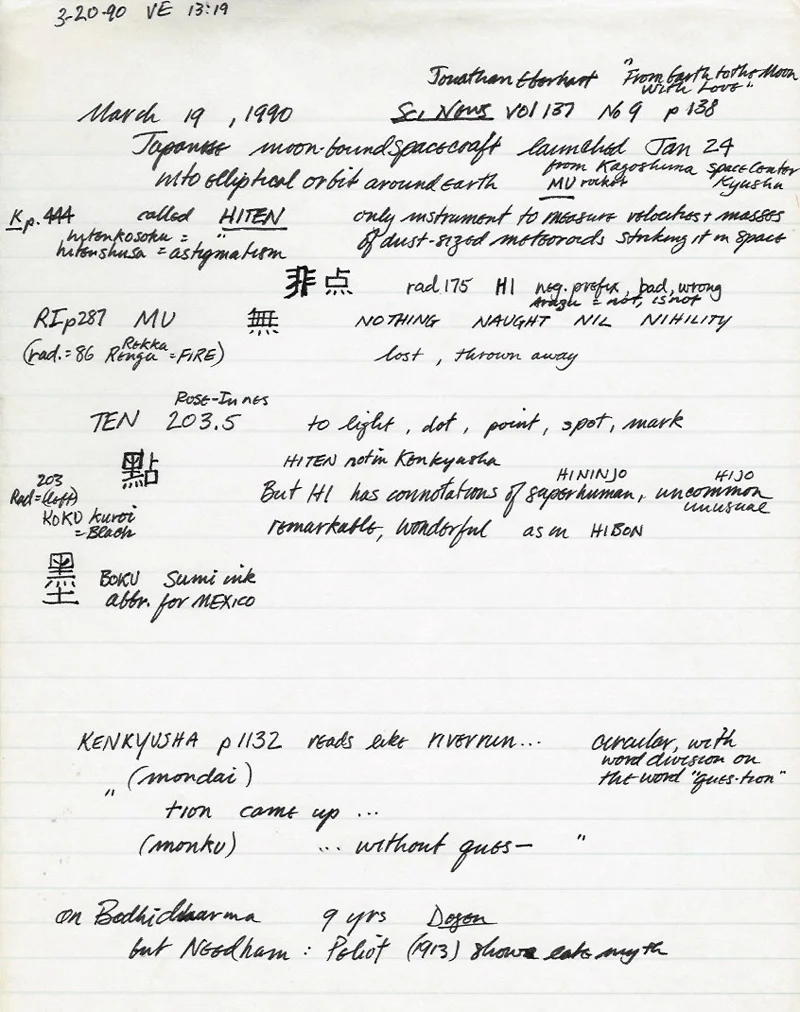 3-20-90 VE 13:19
Jonathan Eberhart "From Earth to the Moon
with Love"
March 19, 1990 Sci News vol 137 No 9 p 138
Japanese moon-bound spacecraft launched Jan 24
from Kagoshima space center
into elliptical orbit around earth MU rocket Kyushu
K p. 444 called HITEN only instrument to measure velocities + masses
hitenkosoku = "
of dust-sized meteoroids striking it in space
hitenshusa = astigmatism
非点 rad. 175 HI neg. prefix, bad, wrong
arazu = not, is not
RI p287 MU 無 NOTHING NAUGHT NIL NIHILITY
Rekka
(rad. = 86 Renga = FIRE) lost, thrown away
ROSE-Innes
TEN 203.5 to light, dot, point, spot, mark
點 HITEN not in Kenkyusha
203 HININJO HIJO
Rad = (left) But HI has connotations of superhuman, uncommon
unusual
KOKU kuroi
= Black remarkable, wonderful as in HIBON
墨 BOKU Sumi ink
abbr. for MEXICO
KENKYUSHA p 1132 reads like riverrun... circular, with
word division on
" (mondai) the word "ques-tion"
tion came up ...
(monku) ... without ques— "
on Bodhidharma 9 yrs Dogen
but Needham: Peliot (1913) shows late myth